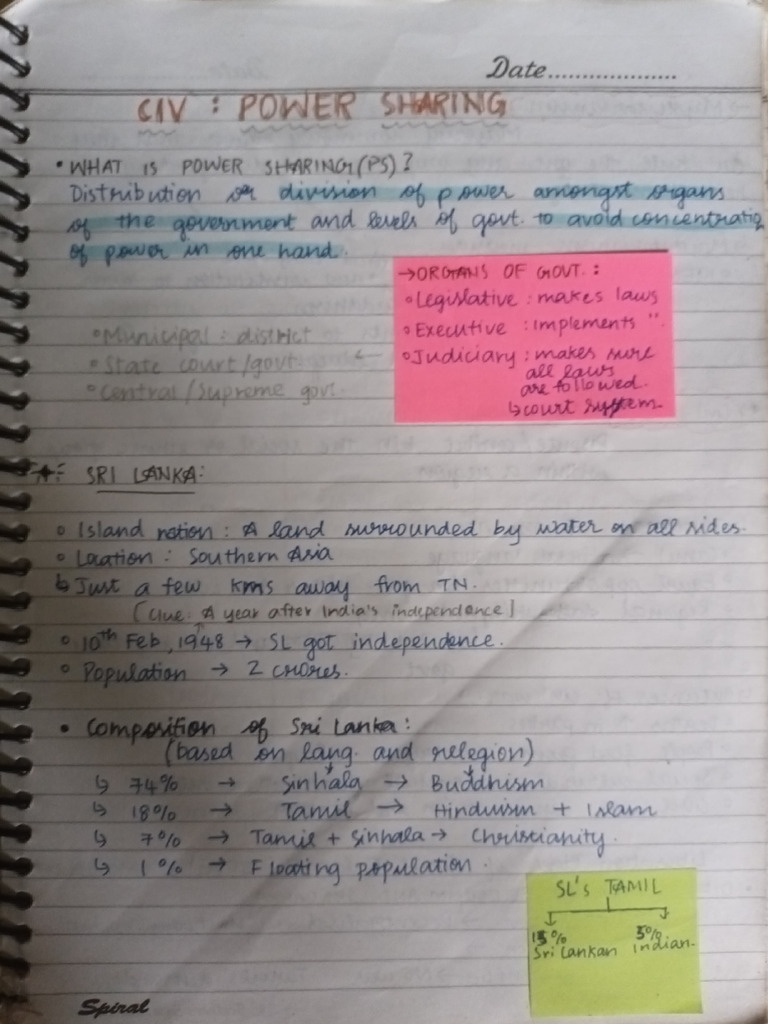 Date....................
CIV : POWER SHARING
• WHAT IS POWER SHARING(PS)?
Distribution or division of power amongst organs
of the government and levels of govt. to avoid concentratio
of power in one hand.
→ORGANS OF GOVT. :
Legislative : makes laws
Executive : implements "
Judiciary : makes sure
all laws
are followed.
↳court system
Municipal : district
State court/govt.
Central/Supreme govt.
SRI LANKA:
Island nation : A land surrounded by water on all sides.
Location : Southern Asia
↳ Just a few kms away from TN.
[Clue: A year after India's independence]
10th Feb, 1948 → SL got independence.
Population → 2 crores.
• Composition of Sri Lanka:
(based on lang. and relegion)
↳ 74% → Sinhala → Buddhism
↳ 18% → Tamil → Hinduism + Islam
↳ 7% → Tamil + Sinhala → Christianity.
↳ 1% → Floating population.
SL's TAMIL
13% 5%
Sri Lankan Indian.
Spiral